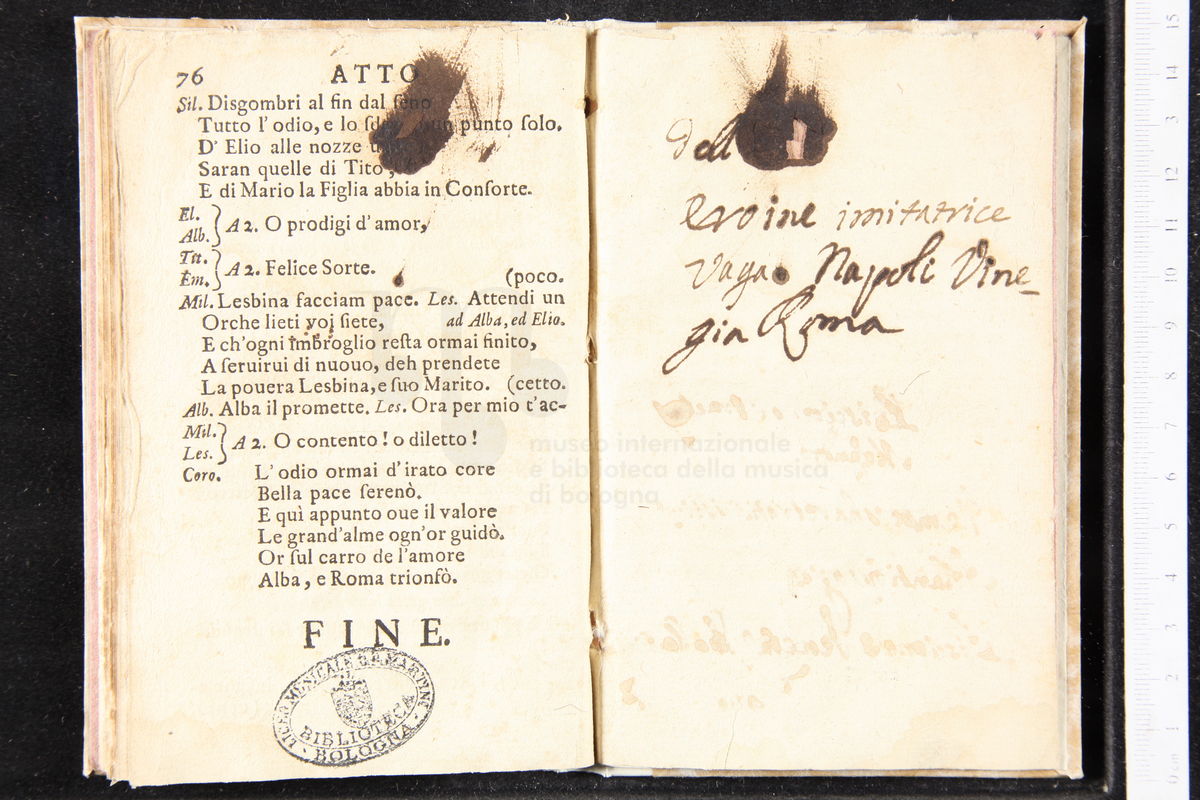 76 ATTO
Sil. Disgombri al fin dal ſeno
Tutto l'odio, e lo punto ſolo.
D'Elio alle nozze
Saran quelle di Tito,
E di Mario la Figlia abbia in Conſorte.
El.
Alb. } A 2. O prodigi d'amor,
Tit.
Em. } A 2. Felice Sorte. (poco.
Mil. Lesbina facciam pace. Les. Attendi un
Orche lieti voi ſiete, ad Alba, ed Elio.
E ch'ogni imbroglio reſta ormai finito,
A ſeruirui di nuouo, deh prendete
La pouera Lesbina, e ſuo Marito. (cetto.
Alb. Alba il promette. Les. Ora per mio t'ac-
Mil.
Les. } A 2. O contento! o diletto!
Coro. L'odio ormai d'irato core
Bella pace ſerenò.
E quì appunto oue il valore
Le grand'alme ogn'or guidò.
Or ſul carro de l'amore
Alba, e Roma trionfò.
FINE.
LICEO MUSICALE G.B. MARTINI
BIBLIOTECA
BOLOGNA
Dell
Eroine imitatrice
Vaga Napoli Vine-
gia Roma
museo internazionale
e biblioteca della musica
di bologna